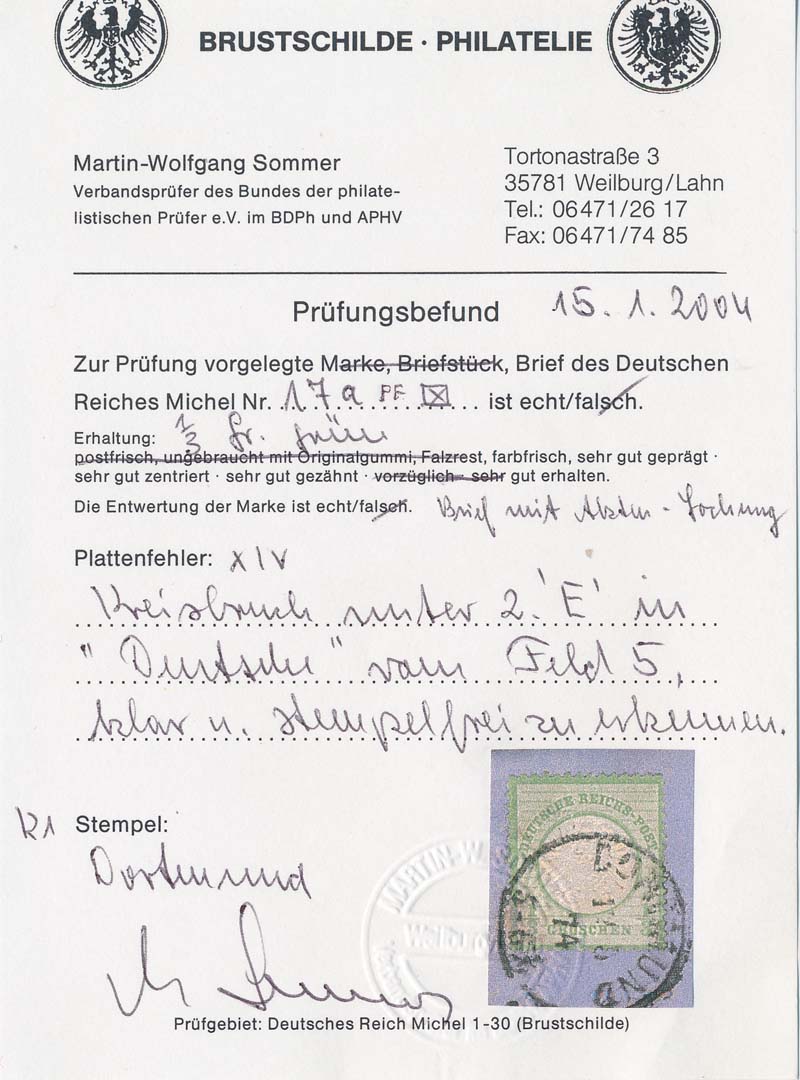 BRUSTSCHILDE · PHILATELIE
Martin-Wolfgang Sommer
Verbandsprüfer des Bundes der philate-
listischen Prüfer e.V. im BDPh und APHV
Tortonastraße 3
35781 Weilburg/Lahn
Tel.: 06471/26 17
Fax: 06471/74 85
Prüfungsbefund 15.1.2004
Zur Prüfung vorgelegte Marke, Briefstück, Brief des Deutschen
Reiches Michel Nr. 17a PF ☒ ist echt/falsch.
Erhaltung: 1/3 Gr. grün
postfrisch, ungebraucht mit Originalgummi, Falzrest, farbfrisch, sehr gut geprägt ·
sehr gut zentriert · sehr gut gezähnt · vorzüglich - sehr gut erhalten.
Die Entwertung der Marke ist echt/falsch. Brief mit Akten-Lochung
Plattenfehler: XIV
Kreisbruch unter 2. 'E' in
"Deutsche" vom Feld 5,
klar u. stempelfrei zu erkennen.
K1 Stempel:
Dortmund
DEUTSCHE REICHS-POST
GROSCHEN
DORTMUND
74
MARTIN-W. SO
Weilburg
Prüfgebiet: Deutsches Reich Michel 1-30 (Brustschilde)